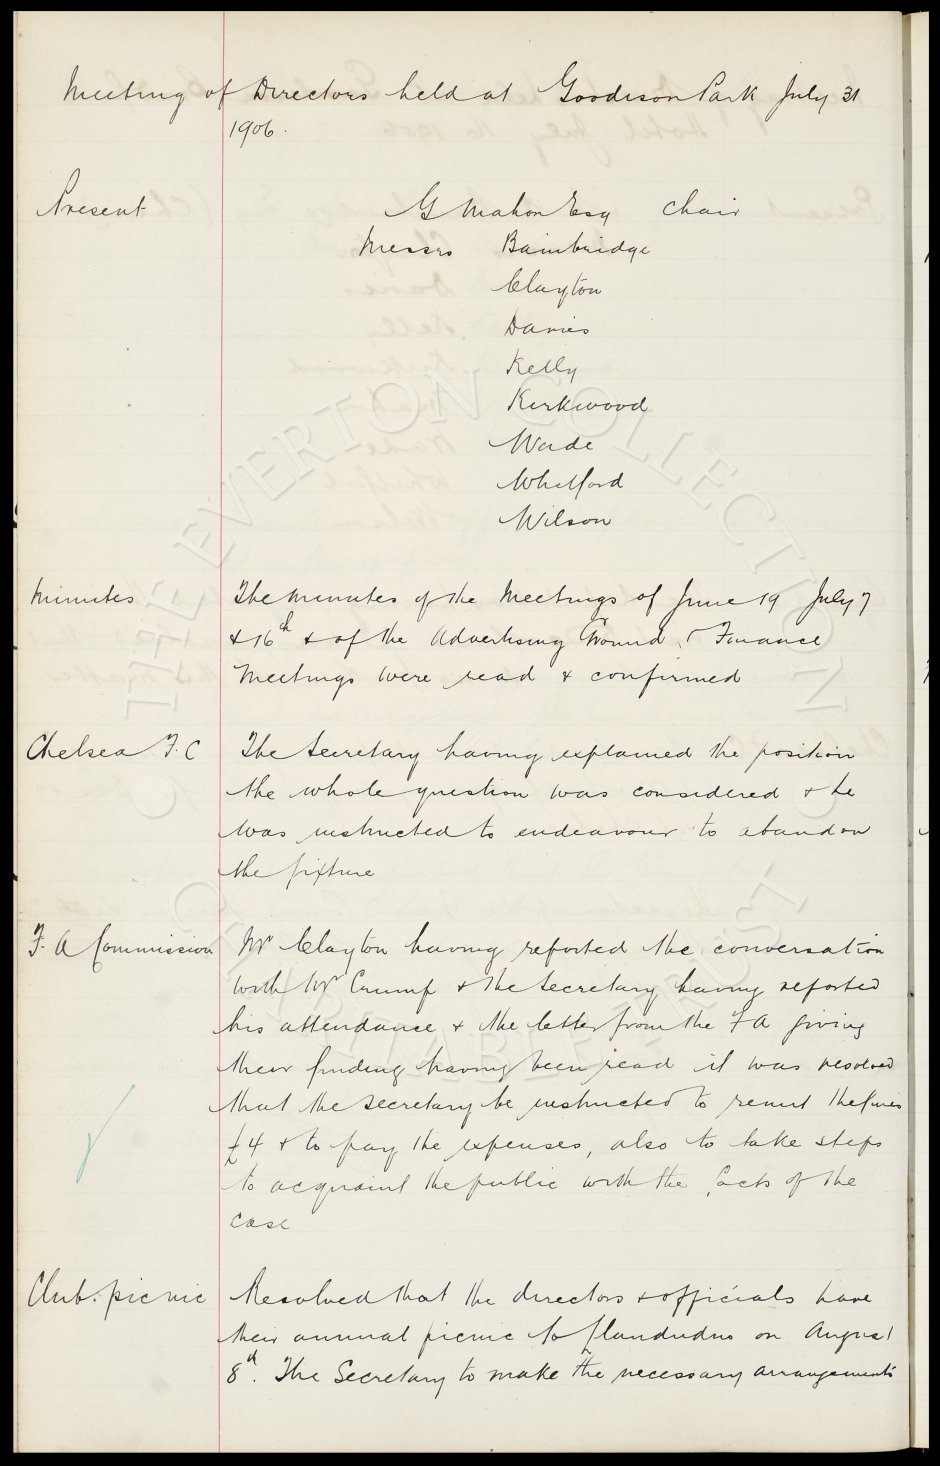 Meeting of Directors held at Goodison Park July 31
1906.
Present
G Mahon Esq Chair
Messrs Bainbridge
Clayton
Davies
Kelly
Kirkwood
Wade
Whitford
Wilson
Minutes
The minutes of the Meetings of June 19 July 7
& 16th & of the Advertising Ground & Finance
Meetings were read & confirmed
Chelsea F.C
The Secretary having explained the position
the whole question was considered & he
was instructed to endeavour to abandon
the fixture
F. A Commission
Mr Clayton having reported the conversation
with Mr Crump & the Secretary having reported
his attendance & the letter from the F A giving
their finding having been read it was resolved
that the Secretary be instructed to remit the fines
£4 & to pay the expenses, also to take steps
to acquaint the public with the facts of the
case
Club. picnic
Resolved that the directors & officials have
their annual picnic to Llandudno on August
8th. The Secretary to make the necessary arrangements
THE EVERTON COLLECTION
CHARITABLE TRUST